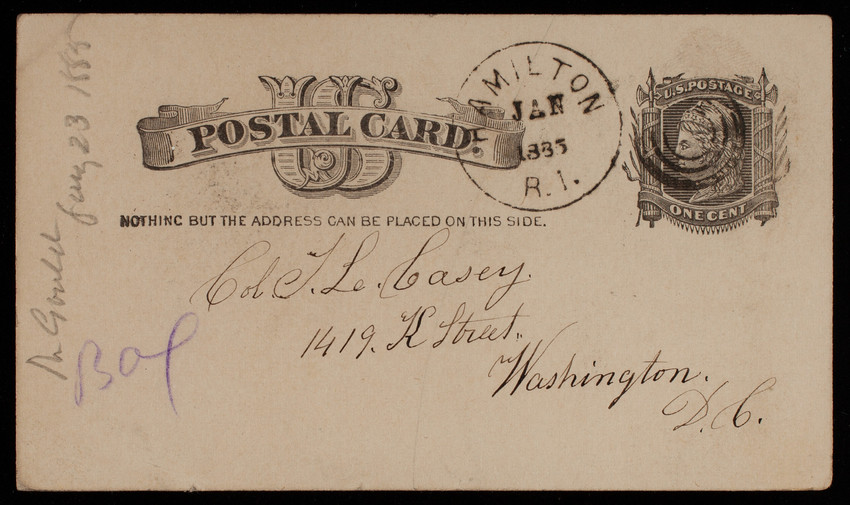 US
POSTAL CARD
NOTHING BUT THE ADDRESS CAN BE PLACED ON THIS SIDE.
HAMILTON
JAN
1885
R.I.
U.S. POSTAGE
ONE CENT
Col. T. L. Casey.
1419. K Street.
Washington.
D. C.
Gould
23 1885